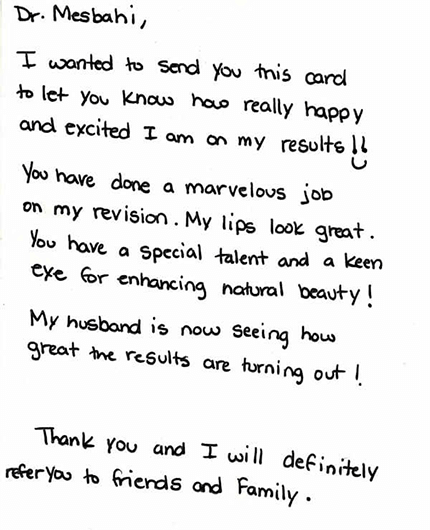 Dr. Mesbahi,
I wanted to send you this card
to let you know how really happy
and excited I am on my results!!
You have done a marvelous job
on my revision. My lips look great.
You have a special talent and a keen
eye for enhancing natural beauty!
My husband is now seeing how
great the results are turning out!
Thank you and I will definitely
refer you to friends and Family.